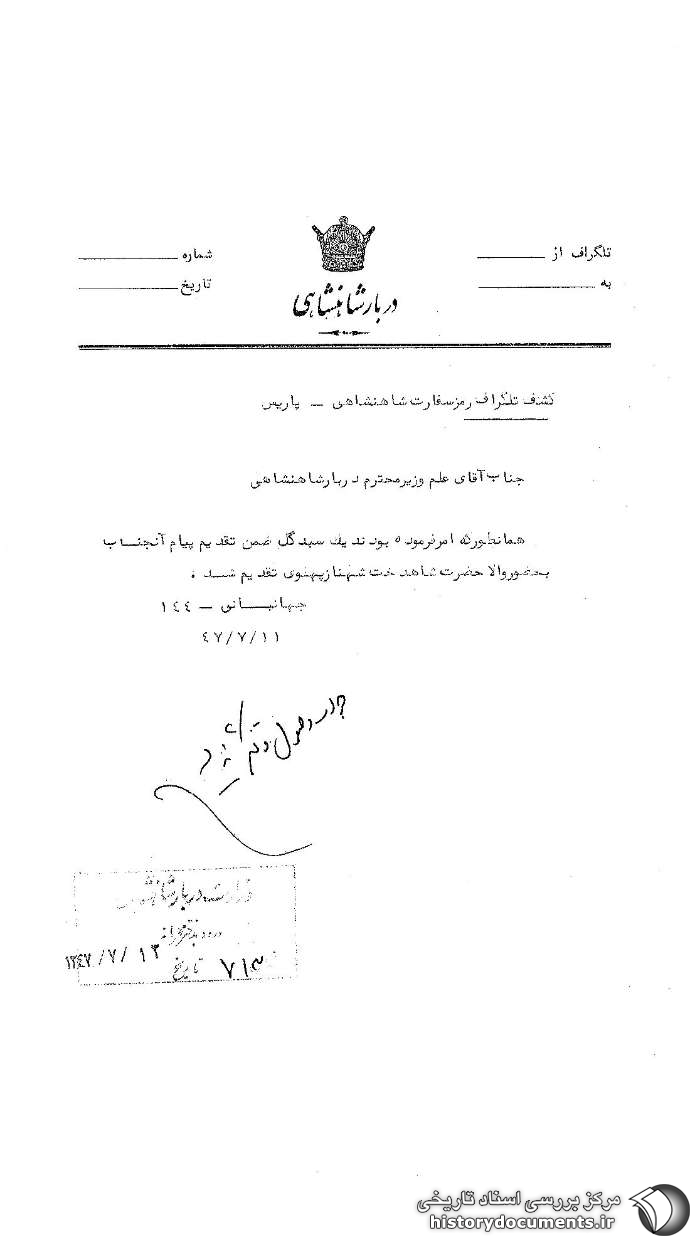 تلگراف از
به
شماره
تاریخ
دربار شاهنشاهی
کشف تلگراف رمز سفارت شاهنشاهی – پاریس
جناب آقای علم وزیر محترم دربار شاهنشاهی
همانطورکه امرفرموده بودند یک سبد گل ضمن تقدیم پیام آنجناب
بحضور والا حضرت شاهدخت شهناز پهلوی تقدیم شد .
جهانبانی – ۱٤٤
٤۷/۷/۱۱
وزارت دربار شاهنشاهی
ورود بدفتر محرمانه
۷۱۳ تاریخ ۱۳٤۷/۷/۱۳
مرکز بررسی اسناد تاریخی
historydocuments.ir